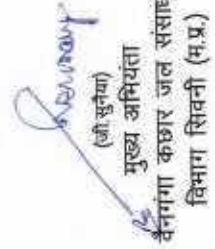 (जी.सुनैया)
मुख्य अभियंता
वैनगंगा कछार जल संसाध
विभाग सिवनी (म.प्र.)